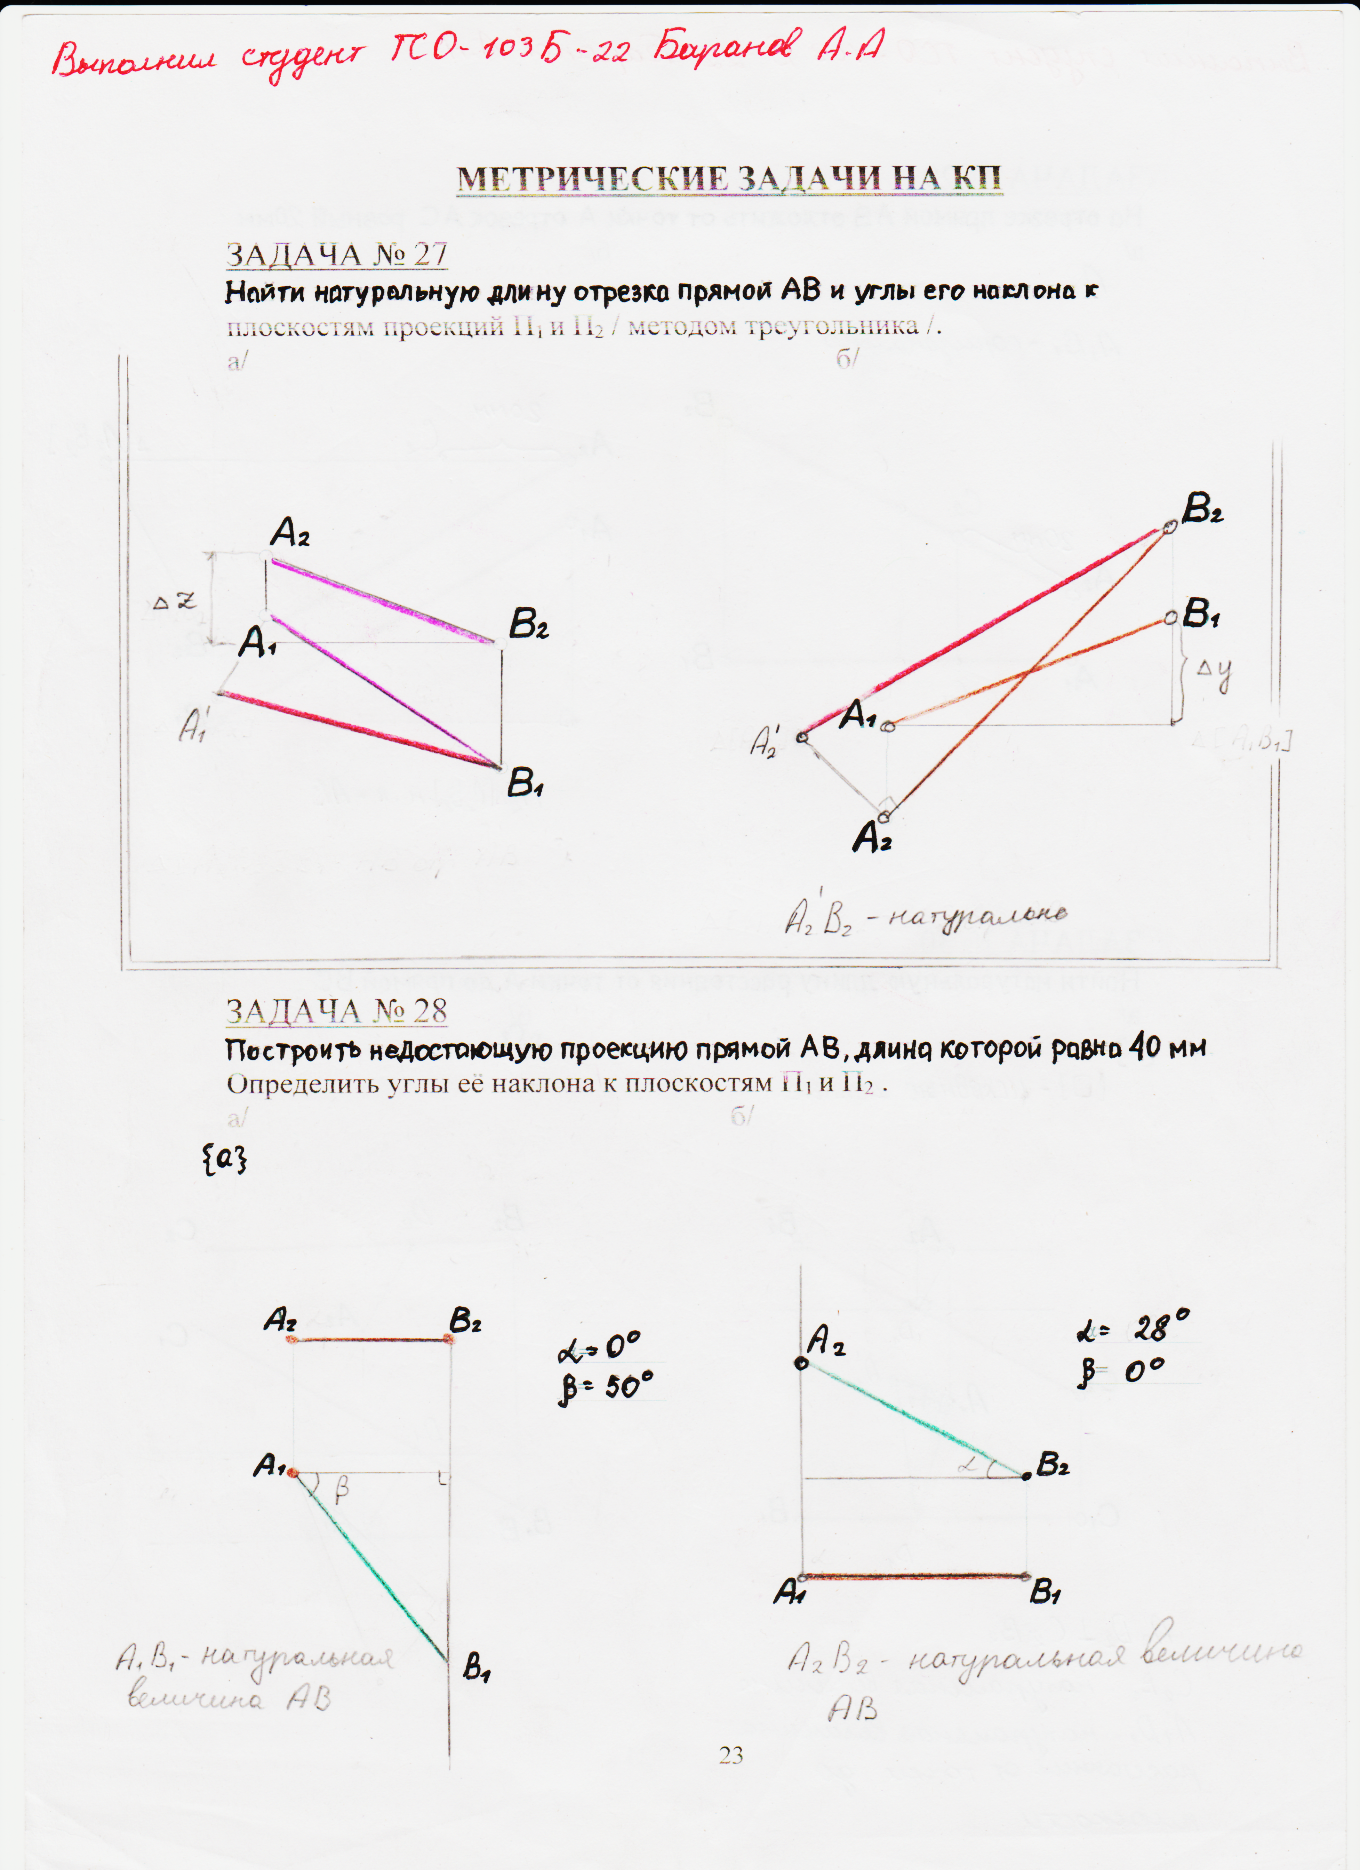 Выполнил студент ПСО-103Б-22 Баранов А.А
МЕТРИЧЕСКИЕ ЗАДАЧИ НА КП
ЗАДАЧА № 27
Найти натуральную длину отрезка прямой АВ и углы его наклона к
плоскостям проекций П₁ и П₂ / методом треугольника /.
а/ б/
A₂
B₂
Δz
B₂
B₁
A₁
Δy
A₁'
A₁
A₂'
Δ[A₁B₁]
B₁
A₂
A₂'B₂ - натурально
ЗАДАЧА № 28
Построить недостающую проекцию прямой АВ, длина которой равна 40 мм
Определить углы её наклона к плоскостям П₁ и П₂ .
а/ б/
{а}
A₂ B₂
α= 0°
β= 50°
A₂
α= 28°
β= 0°
A₁
β
α
B₂
A₁
B₁
A₁B₁ - натуральная
величина АВ
B₁
A₂B₂ - натуральная величина
АВ
23